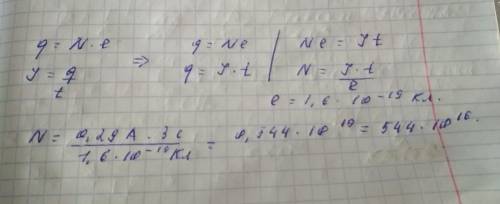 q = N · e ⇒ q = Ne | Ne = It
I = q/t q = I · t | N = I · t / e
e = 1,6 · 10⁻¹⁹ Кл.
N = 0,29 А · 3с / 1,6 · 10⁻¹⁹ Кл = 0,544 · 10¹⁹ = 544 · 10¹⁶.